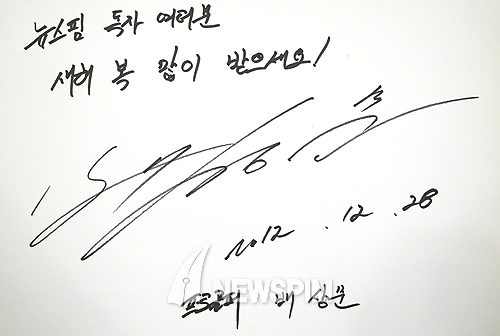 뉴스핌 독자 여러분
새해 복 많이 받으세요!
2012 . 12 . 28
NEWSPIM
프로골퍼 배상문